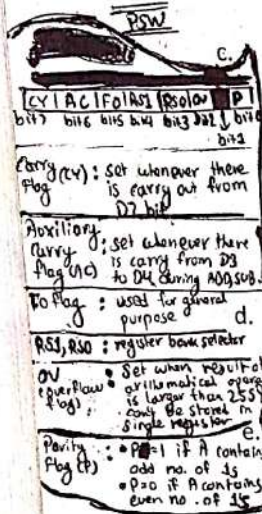 PSW
C.
CY | AC | F0 | RS1 | RS0 | OV | P
bit7 bit6 bit5 bit4 bit3 bit2 ↓ bit0
bit1
Carry (CY) : set whenever there
Flag is carry out from
D7 bit
Auxiliary
Carry : set whenever there
flag (AC) is carry from D3
to D4 during ADD, SUB.
Fo flag : used for general
purpose
d.
RS1, RS0 : register bank selector
OV • Set when result of
(overflow arithmatical opera
flag) : is larger than 255
• can't be stored in
single register
e.
Parity : • P=1 if A contain
Flag (P) odd no. of 1s
• P=0 if A contains
even no. of 1s